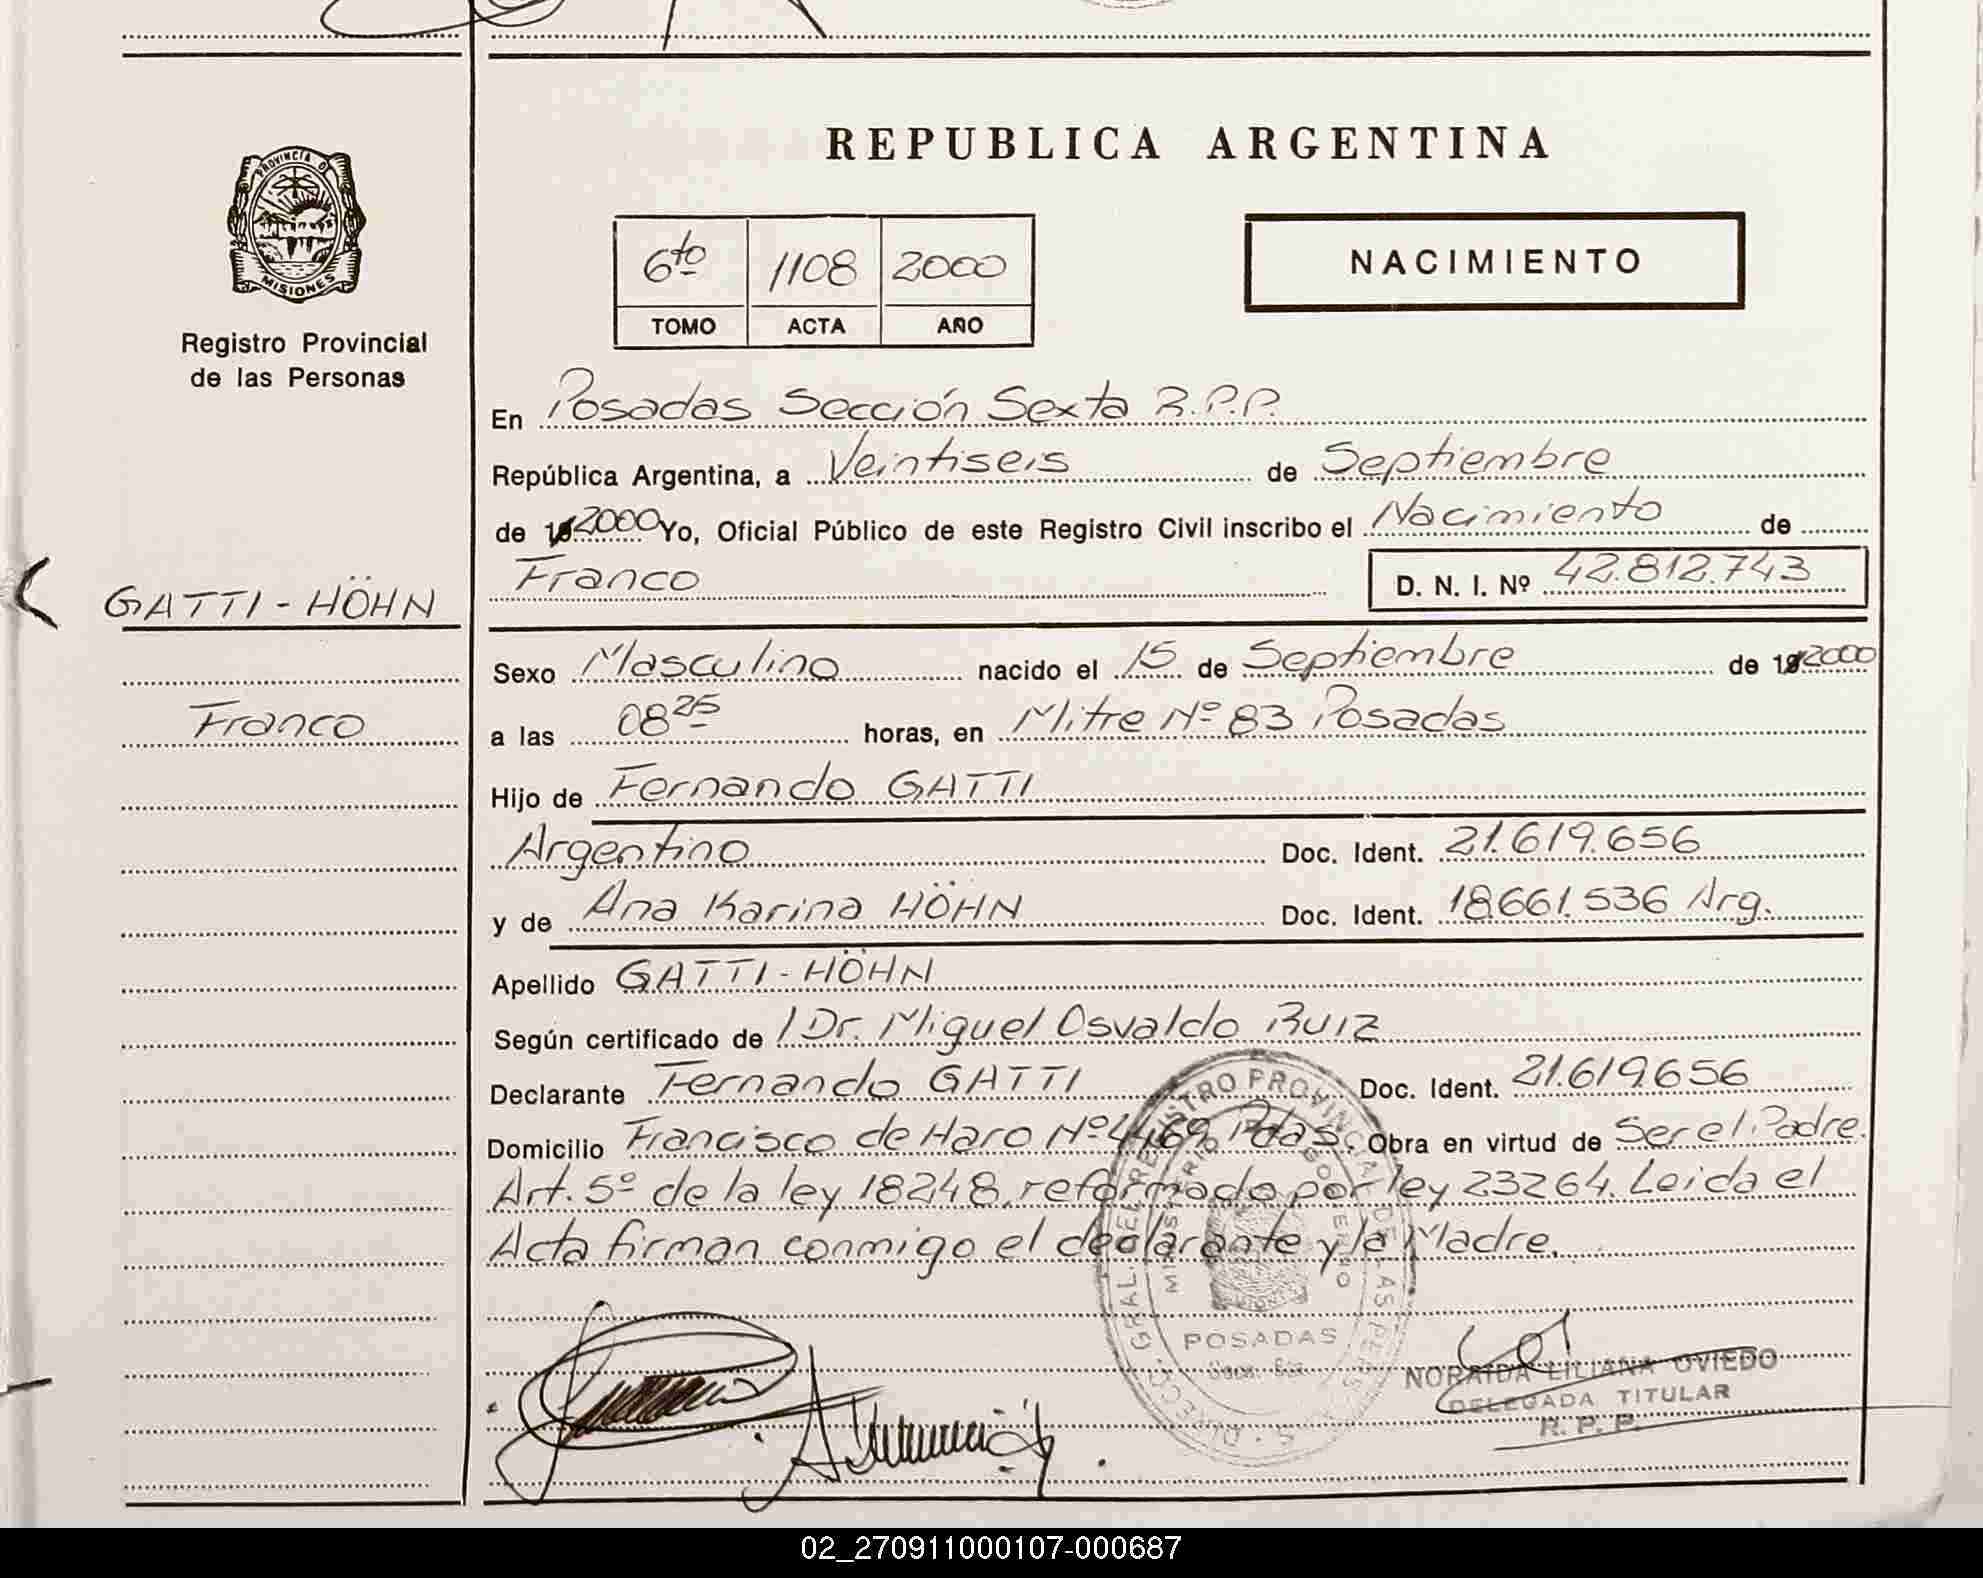 REPUBLICA ARGENTINA
PROVINCIA DE
MISIONES
Registro Provincial
de las Personas
6to 1108 2000
TOMO ACTA AÑO
NACIMIENTO
En Posadas Sección Sexta R.P.P.
República Argentina, a Veintiseis de Septiembre
de 19 2000 Yo, Oficial Público de este Registro Civil inscribo el Nacimiento de
Franco D. N. I. Nº 42.812.743
GATTI - HÖHN
Franco
Sexo Masculino nacido el 15 de Septiembre de 19 2000
a las 08 25 horas, en Mitre Nº 83 Posadas
Hijo de Fernando GATTI
Argentino Doc. Ident. 21.619.656
y de Ana Karina HÖHN Doc. Ident. 18.661.536 Arg.
Apellido GATTI - HÖHN
Según certificado de l Dr. Miguel Osvaldo RUIZ
Declarante Fernando GATTI Doc. Ident. 21.619.656
Domicilio Francisco de Haro Nº 4469 Pdas. Obra en virtud de Ser el Padre.
Art. 5º de la ley 18248, reformado por ley 23264. Leida el
Acta firman conmigo el declarante y la Madre.
DIRECC. GRAL. DEL REGISTRO PROVINCIAL DE LAS PERSONAS
MINISTERIO GOBIERNO
POSADAS
NORAIDA LILIANA OVIEDO
DELEGADA TITULAR
R. P. P.
02_270911000107-000687